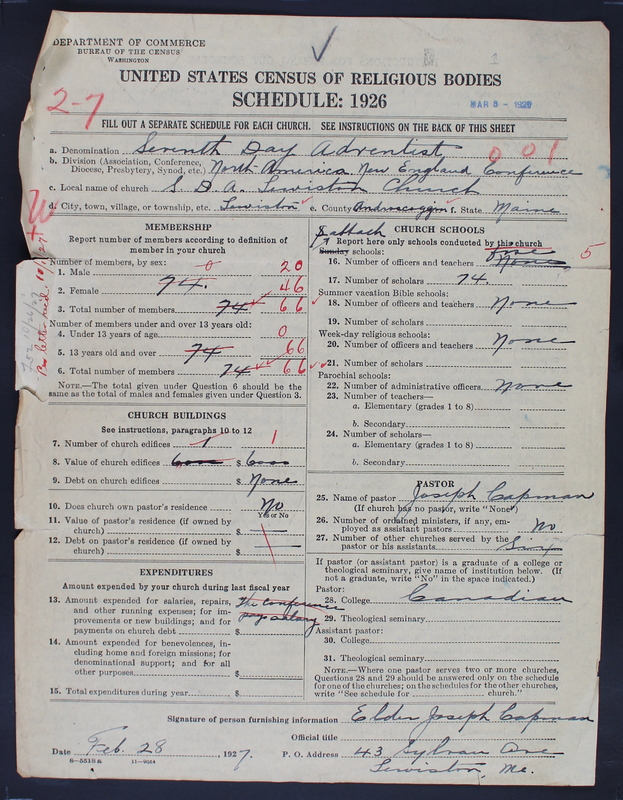 DEPARTMENT OF COMMERCE
BUREAU OF THE CENSUS
WASHINGTON
1
UNITED STATES CENSUS OF RELIGIOUS BODIES
SCHEDULE: 1926
2-7
MAR 5 - 1927
FILL OUT A SEPARATE SCHEDULE FOR EACH CHURCH. SEE INSTRUCTIONS ON THE BACK OF THIS SHEET
a. Denomination Seventh Day Adventist
0 0 1
b. Division (Association, Conference, Diocese, Presbytery, Synod, etc.) North America New England Conference
c. Local name of church S. D. A. Lewiston Church
d. City, town, village, or township, etc. Lewiston e. County Androscoggin f. State Maine
MEMBERSHIP
Report number of members according to definition of member in your church
Number of members, by sex:
1. Male 0 20
2. Female 74. 46
3. Total number of members 74 66
Number of members under and over 13 years old:
4. Under 13 years of age 0
5. 13 years old and over 74 66
6. Total number of members 74 66
NOTE.—The total given under Question 6 should be the same as the total of males and females given under Question 3.
CHURCH BUILDINGS
See instructions, paragraphs 10 to 12
7. Number of church edifices 1 1
8. Value of church edifices 6000 $ 6000
9. Debt on church edifices $ None
10. Does church own pastor's residence No
Yes or No
11. Value of pastor's residence (if owned by church) $ —
12. Debt on pastor's residence (if owned by church) $ —
EXPENDITURES
Amount expended by your church during last fiscal year
13. Amount expended for salaries, repairs, and other running expenses; for improvements or new buildings; and for payments on church debt $
The Conference
pays salary
14. Amount expended for benevolences, including home and foreign missions; for denominational support; and for all other purposes $
15. Total expenditures during year $
CHURCH SCHOOLS
Report here only schools conducted by this church
Sabbath
Sunday schools:
16. Number of officers and teachers None
5
17. Number of scholars 74.
Summer vacation Bible schools:
18. Number of officers and teachers None
19. Number of scholars
Week-day religious schools:
20. Number of officers and teachers None
21. Number of scholars
Parochial schools:
22. Number of administrative officers None
23. Number of teachers—
a. Elementary (grades 1 to 8)
b. Secondary
24. Number of scholars—
a. Elementary (grades 1 to 8)
b. Secondary
PASTOR
25. Name of pastor Joseph Capman
(If church has no pastor, write "None")
26. Number of ordained ministers, if any, employed as assistant pastors No
27. Number of other churches served by the pastor or his assistants Six
If pastor (or assistant pastor) is a graduate of a college or theological seminary, give name of institution below. (If not a graduate, write "No" in the space indicated.)
Pastor:
28. College Canadian
29. Theological seminary
Assistant pastor:
30. College
31. Theological seminary
NOTE.—Where one pastor serves two or more churches, Questions 28 and 29 should be answered only on the schedule for one of the churches; on the schedules for the other churches, write "See schedule for church."
Signature of person furnishing information Elder Joseph Capman
Official title
Date Feb. 28, 1927. P. O. Address 43 Sylvan Ave
Lewiston, Me.
8-5518a 11-9064